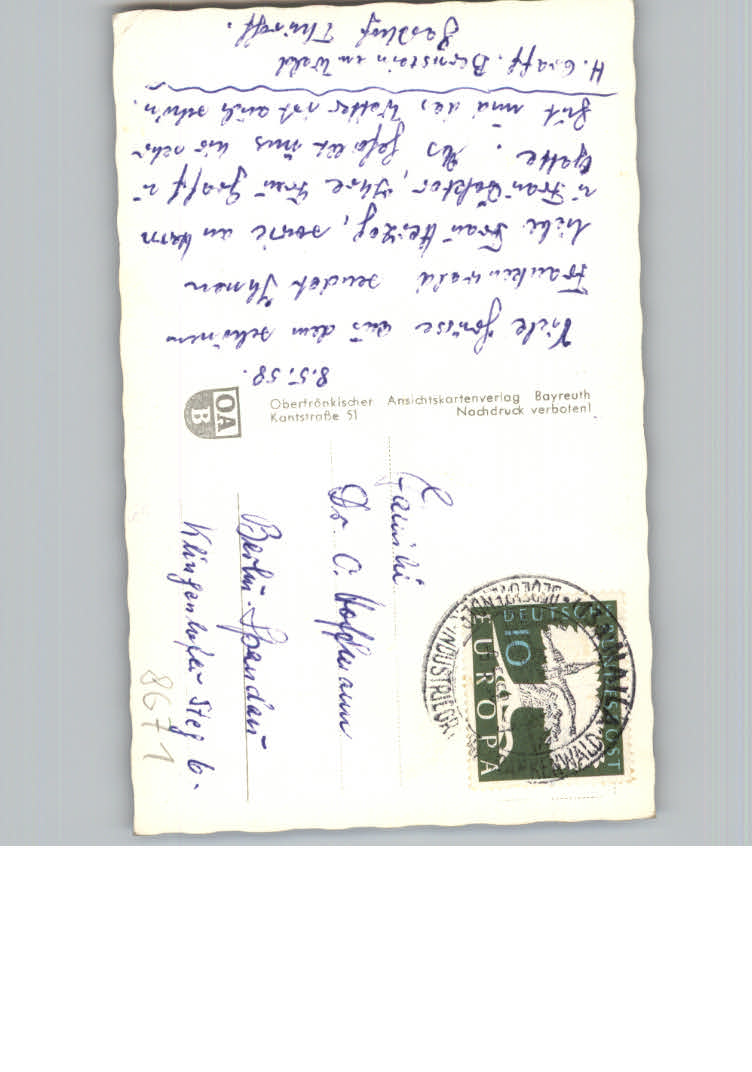 8.5.58.
Viele Grüsse aus dem schönen
Frankenwald sendet Ihnen
liebe Frau Herzog, sowie an Herrn
u Frau Doktor, Ihre Frau Graff u
Gatte. Es gefällt uns hier sehr
gut und das Wetter ist auch schön.
H. Graff. Bernstein im Wald
Gasthof
Oberfränkischer Ansichtskartenverlag Bayreuth
Kantstraße 51 Nachdruck verboten!
OA
B
Familie
Dr. O. Hoffmann
Berlin-Spandau
Klingenhofer Steg 6.
8671
DEUTSCHE BUNDESPOST
10
EUROPA
FRANKENWALD